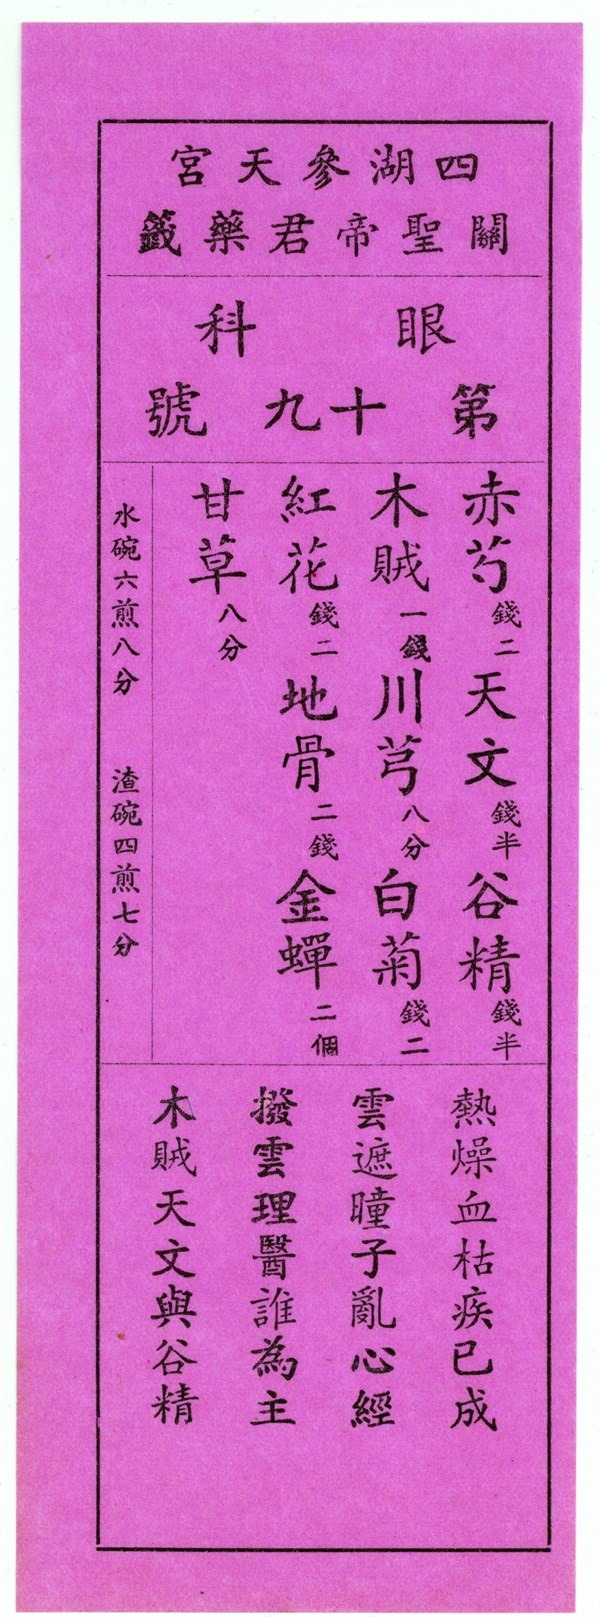 四湖參天宮
關聖帝君藥籤
眼科
第十九號
赤芍錢二天文錢半谷精錢半
木賊一錢川芎八分白菊錢二
紅花錢二地骨二錢金蟬二個
甘草八分
水碗六煎八分 渣碗四煎七分
熱燥血枯疾已成
雲遮瞳子亂心經
撥雲理醫誰為主
木賊天文與谷精